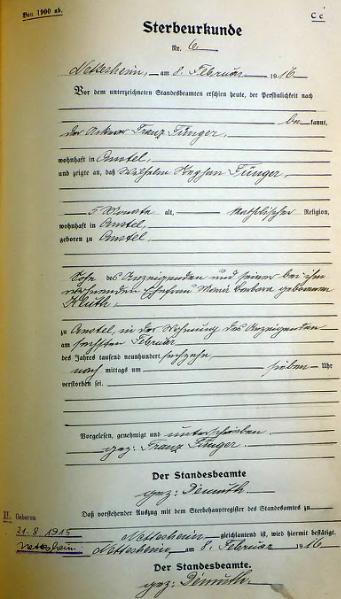 Von 1900 ab.
C c
Sterbeurkunde
Nr. 6
Nettersheim, am 8. Februar 1916
Vor dem unterzeichneten Standesbeamten erschien heute, der Persönlichkeit nach
be kannt,
der Ackerer Franz Tünger,
wohnhaft in
und zeigte an, daß Wilhelm Tünger,
5 Monate alt, katholischer Religion,
wohnhaft in
geboren zu
Sohn des Anzeigenden und seiner bei ihm
wohnenden Ehefrau Maria Barbara geborenen
Kluth,
zu in der Wohnung des Anzeigenden
am sechsten Februar
des Jahres tausend neunhundert sechzehn
nach mittags um sieben Uhr
verstorben sei.
Vorgelesen, genehmigt und unterschrieben
gez: Franz Tünger.
Der Standesbeamte
gez: Demuth.
Daß vorstehender Auszug mit dem Sterbehauptregister des Standesamtes zu
II. Geboren
31.8.1915
Nettersheim gleichlautend ist, wird hiermit bestätigt.
Nettersheim, am 8. Februar 1916
Der Standesbeamte.
gez: Demuth.